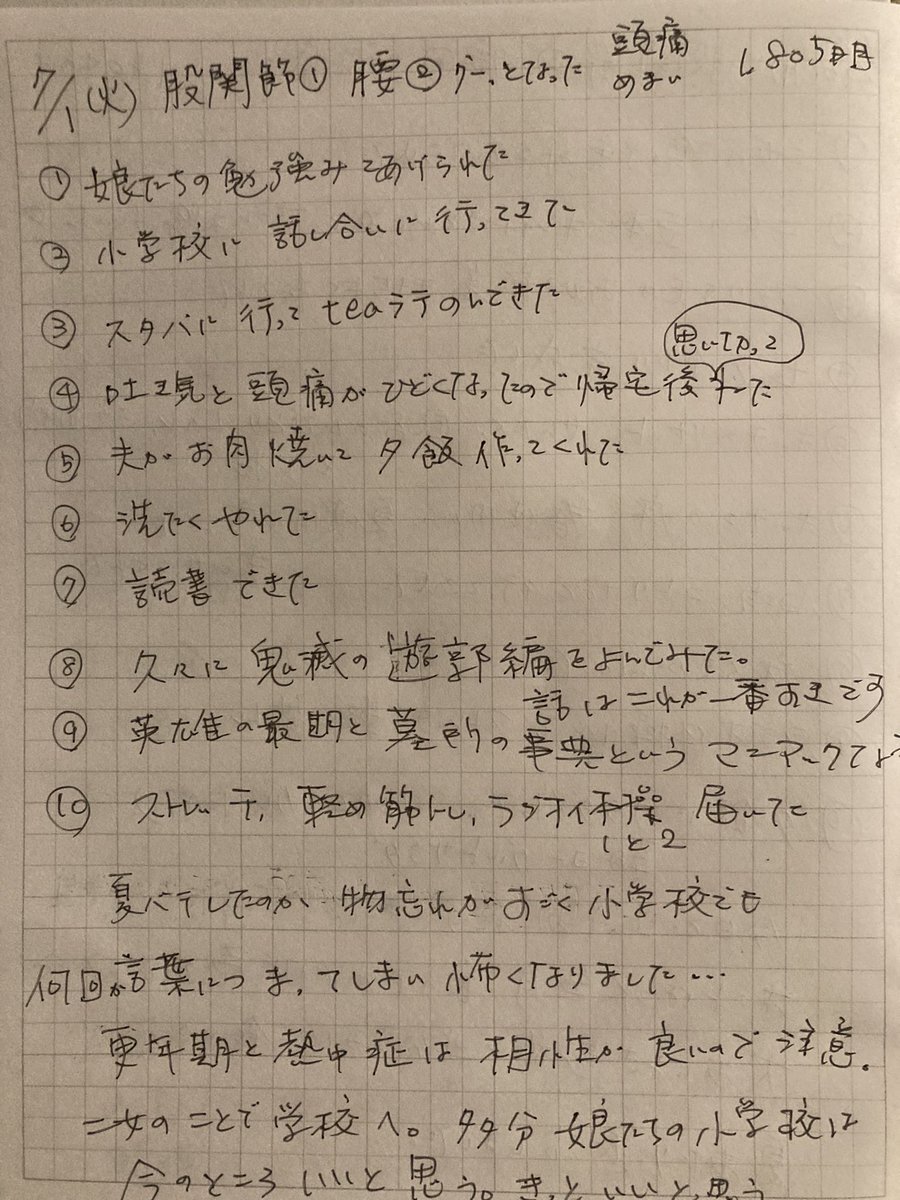 7/1(火) 股関節① 腰②グーッとなった 頭痛 めまい 1805日目
① 娘たちの勉強みてあげられた
② 小学校に話し合いに行ってきた
③ スタバに行って teaラテのんできた
④ 吐き気と頭痛がひどくなったので帰宅後
思いていかって
⑤ 夫がお肉焼いて夕飯作ってくれた
⑥ 洗たくやれた
⑦ 読書できた
⑧ 久々に鬼滅の遊郭編をよんでみた。
話はこれが一番すきです
⑨ 英雄の最期と墓所の事典というマニアックな
⑩ ストレッチ, 軽め筋トレ, ラジオ体操 届いた
1と2
夏バテしたのか 物忘れがすごく 小学校でも
何回か言葉につまってしまい 怖くなりました…
更年期と熱中症は相性が良いので注意。
二女のことで学校へ。多分 娘たちの小学校は
今のところいいと思う。きっといいと思う